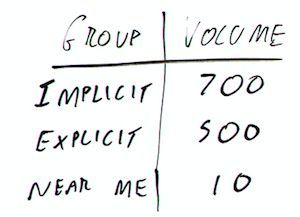 GROUP VOLUME
IMPLICIT 700
EXPLICIT 500
NEAR ME 10